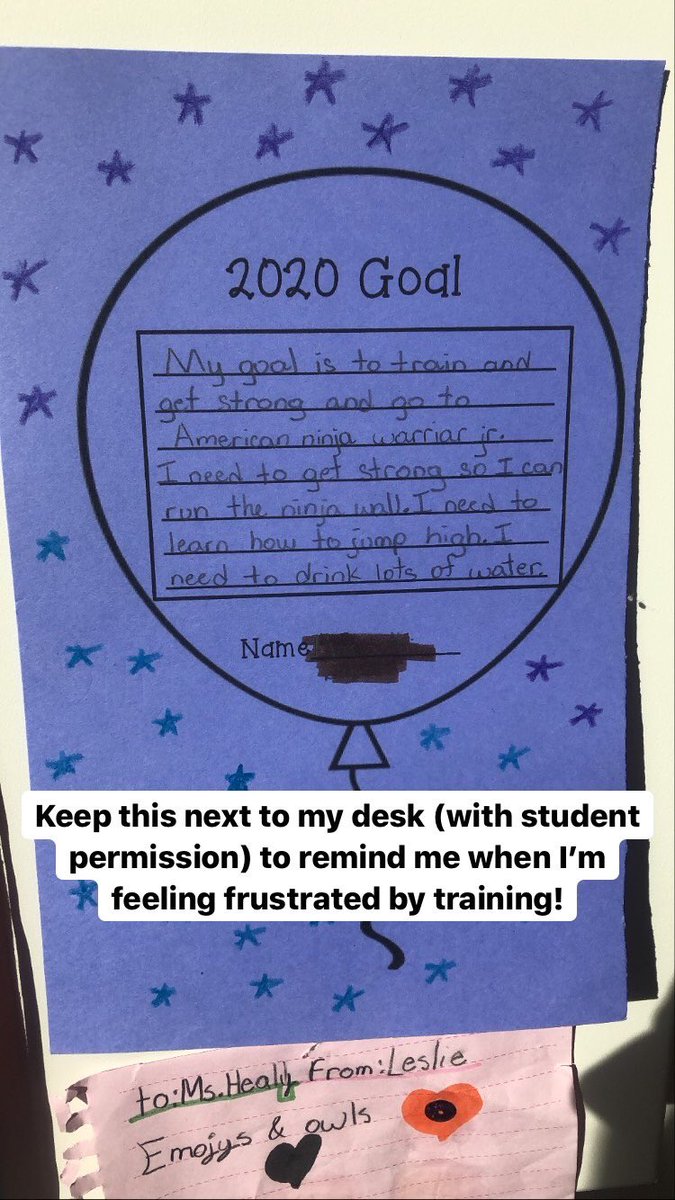 2020 Goal
My goal is to train and
get strong and go to
American ninja warriar jr.
I need to get strong so I can
run the ninja wall. I need to
learn how to jump high. I
need to drink lots of water.
Name
Keep this next to my desk (with student
permission) to remind me when I’m
feeling frustrated by training!
to: Ms. Healy From: Leslie
Emojys & owls